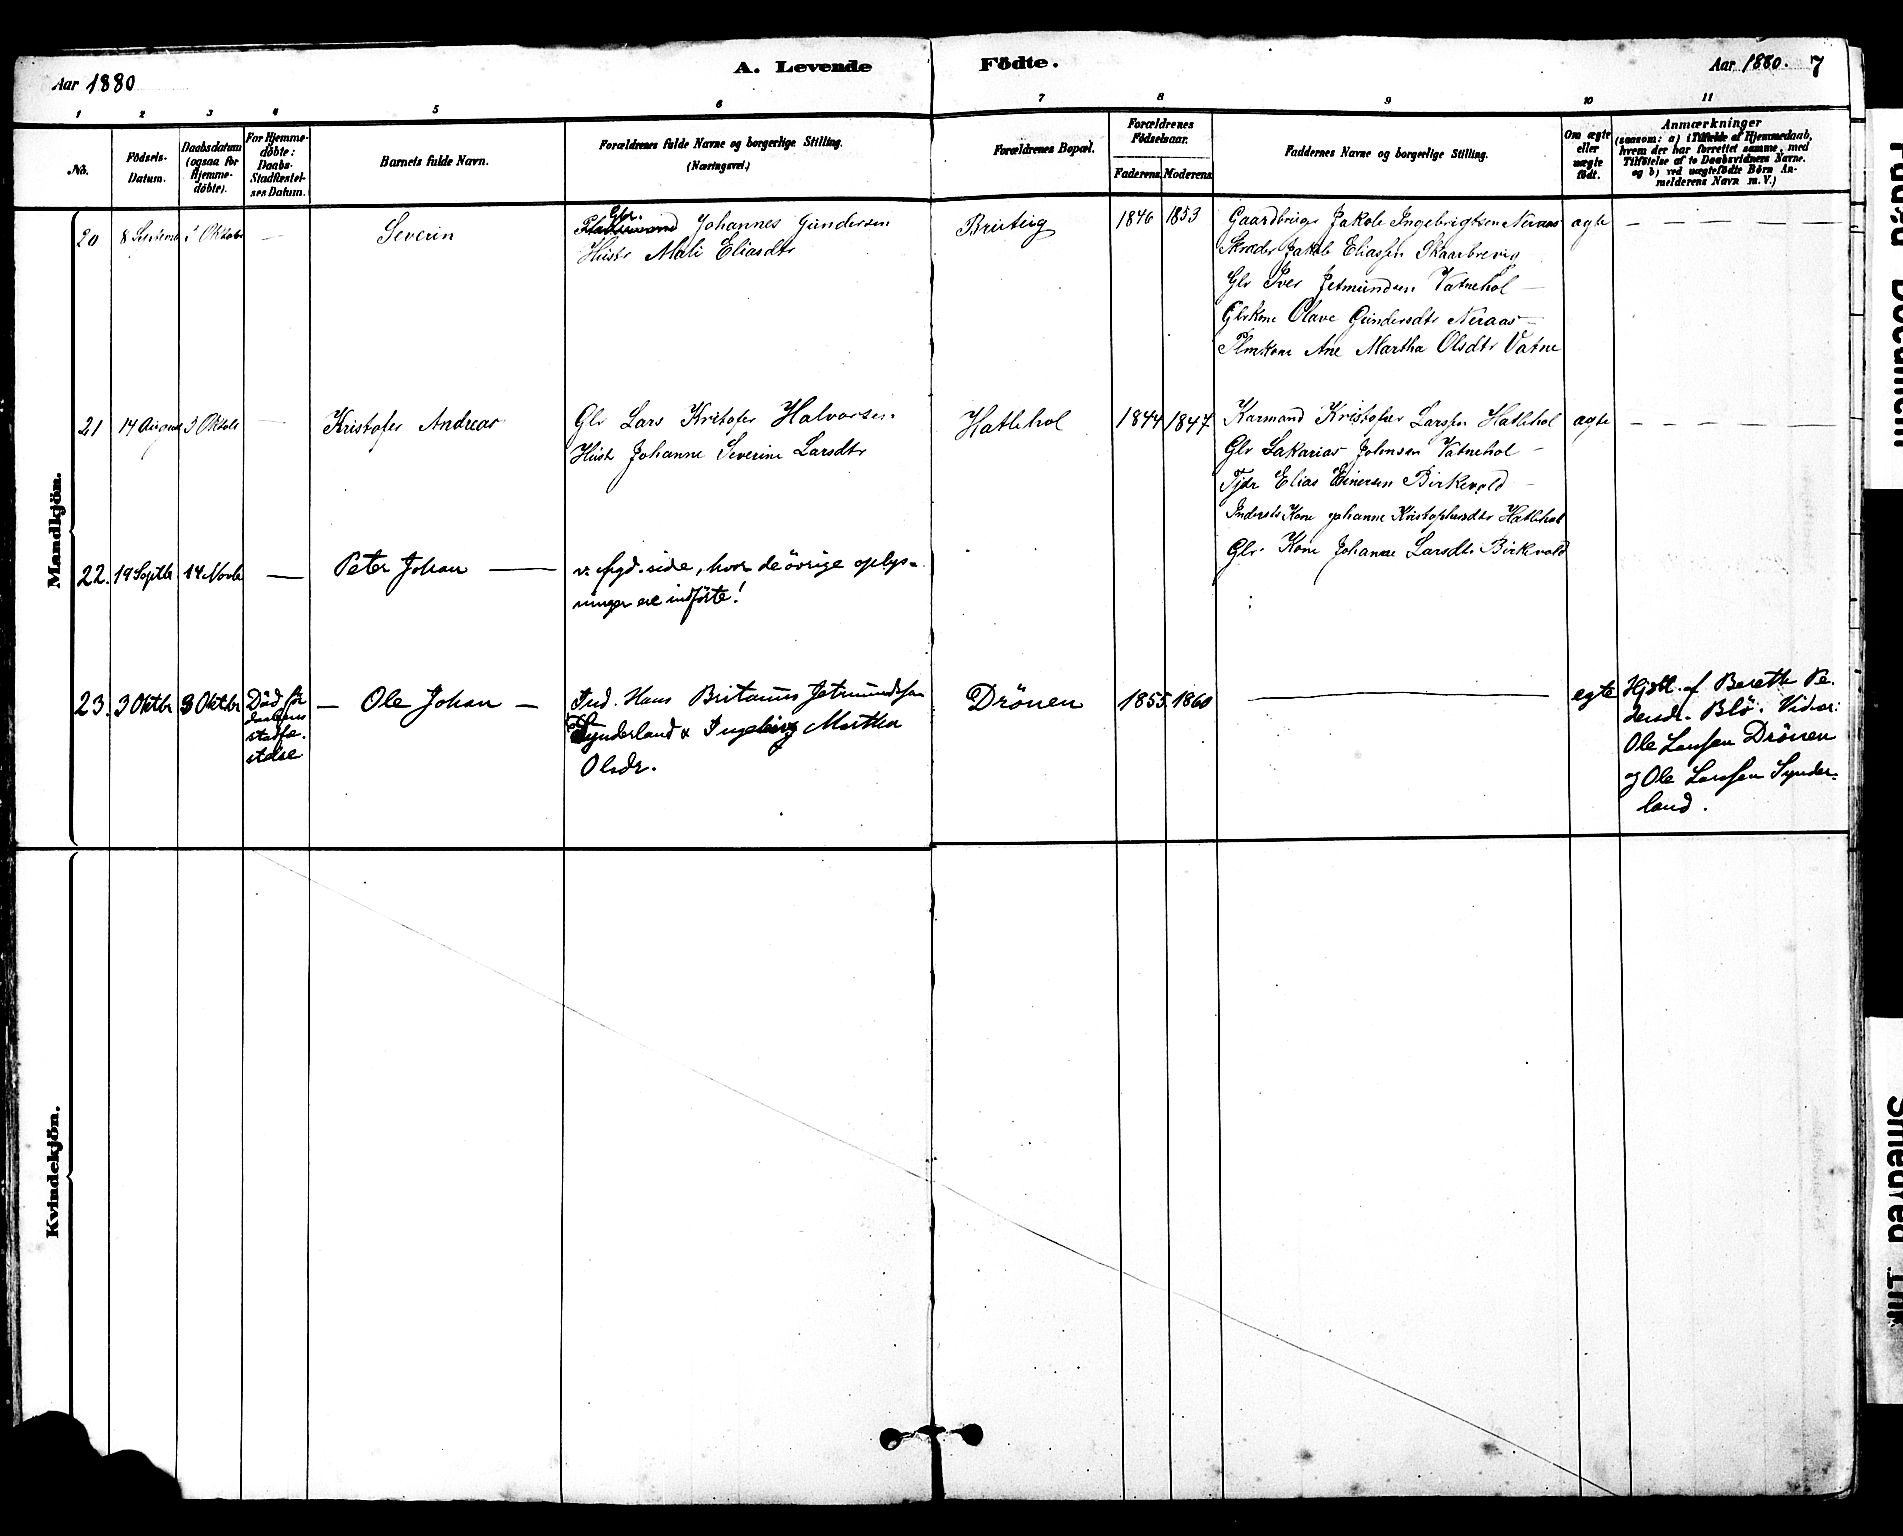 Aar 1880
A. Levende Födte.
Aar 1880. 7
1 2 3 4 5 6 7 8 9 10 11
No.
Födsels-
Datum.
Daabsdatum
(ogsaa for
Hjemme-
döbte).
For Hjemme-
döbte:
Daabs-
Stadfæstel-
ses Datum.
Barnets fulde Navn.
Forældrenes fulde Navne og borgerlige Stilling.
(Næringsvei.)
Forældrenes Bopæl.
Forældrenes
Födselsaar.
Faderens. Moderens.
Faddernes Navne og borgerlige Stilling.
Om ægte
eller
uægte
födt.
Anmærkninger
(saasom: a) i Tilfælde af Hjemmedaab,
hvem der har forrettet samme, med
Tilföielse af to Daabsvidners Navne.
og b) ved uægtefödte Börn An-
melderens Navn m. V.)
Mandkjön.
20 8 Septemb Oktobr — Severin
Gbr.
Pladsemand Johannes Gundersen
Hustr Mali Eliasdtr
1846 1853
Gaardbruger Jakob Ingebrigtsen Neraas
Skræder Jakob Eliassen Skaarbrevig
Gbr Iver Jetmundsen Vatnehol —
Gbrkone Olave Gundersdtr Neraas —
Plmkone Ane Martha Olsdtr Vatne
ægte — — — —
21 14 August 3 Oktobr — Kristofer Andreas
Gbr Lars Kristofer Halvorsen
Hustr Johanne Severine Larsdtr
Hatlehol 1844 1847
Karmand Kristofer Larssen Hatlehol
Gbr Sakarias Johnsen Vatnehol —
Tjdr Elias Einersen Birkevold —
Inderst Kone Johanne Kristophersdtr Hatlehol
Gbr. Kone Johanne Larsdtr Birkevold
ægte — — — — — —
22. 19 Septbr 14 Novbr — Peter Johan —
v. fgd. side, hvor de övrige oplys-
ninger ere indförte!
23. 3 Oktbr 3 Oktbr
Död för
daabens
stadfæ-
stelse
— Ole Johan —
Ind. Hans Britanus Jetmundssen
Synderland & Ingeborg Martha
Olsdr.
Drönen 1855. 1860 —
egte
Hjdbt. af Berette Pe-
dersdr. Blö. Vidner:
Ole Larssen Drönen
og Ole Larssen Synder-
land.
Kvindekjön.